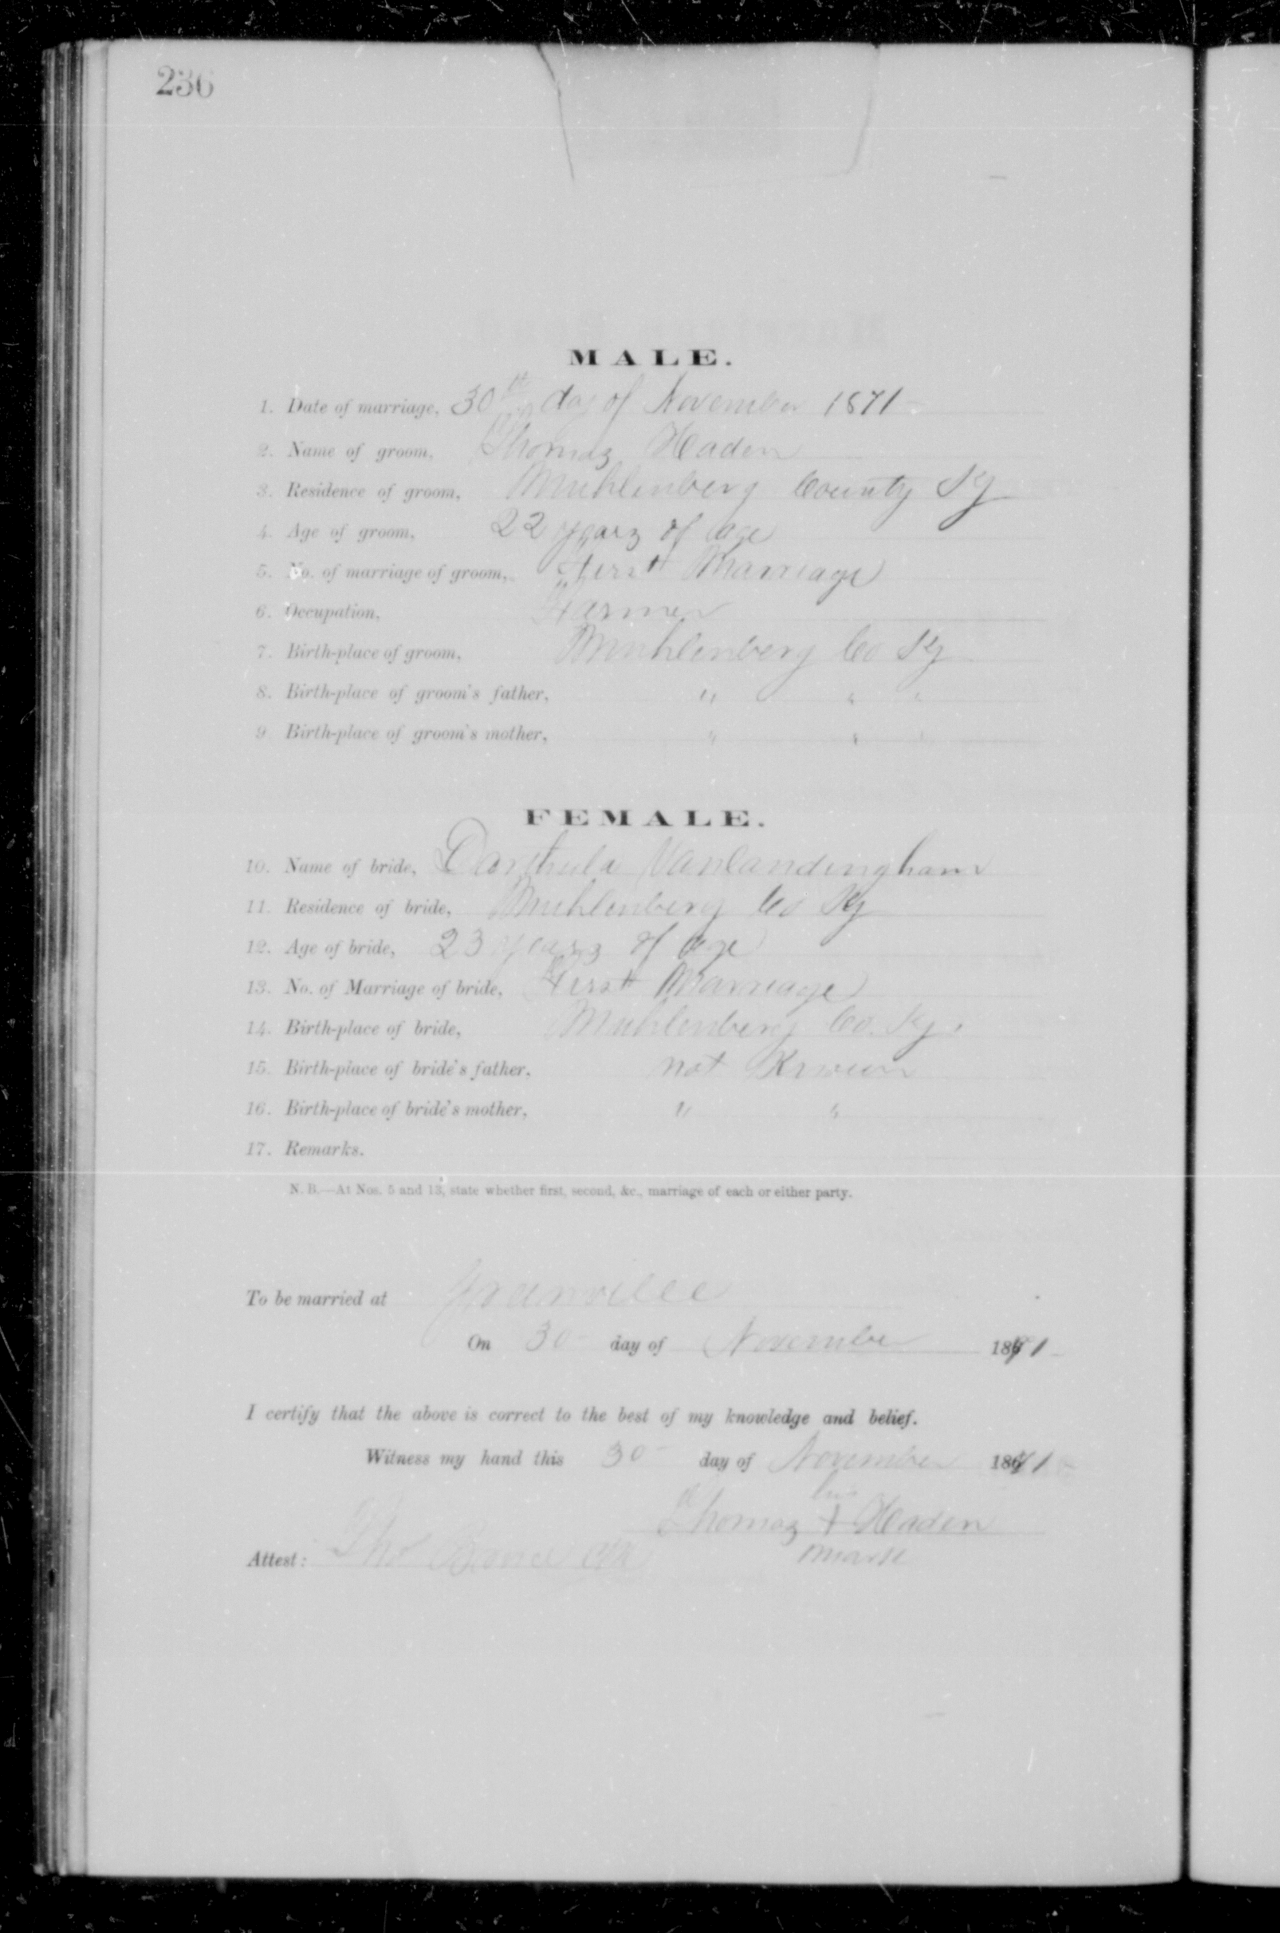 236
MALE.
1. Date of marriage, 30th day of November 1871
2. Name of groom, Thomas Haden
3. Residence of groom, Muhlenberg County Ky
4. Age of groom, 22 years of age
5. No. of marriage of groom, First Marriage
6. Occupation, Farmer
7. Birth-place of groom, Muhlenberg Co Ky
8. Birth-place of groom's father, " " "
9. Birth-place of groom's mother, " " "
FEMALE.
10. Name of bride, Darthula Vanlandingham
11. Residence of bride, Muhlenberg Co Ky
12. Age of bride, 23 years of age
13. No. of Marriage of bride, First Marriage
14. Birth-place of bride, Muhlenberg Co. Ky.
15. Birth-place of bride's father, not Known
16. Birth-place of bride's mother, " "
17. Remarks.
N. B.—At Nos. 5 and 13, state whether first, second, &c., marriage of each or either party.
To be married at Greenville
On 30 day of November 1871
I certify that the above is correct to the best of my knowledge and belief.
Witness my hand this 30 day of November 1871
his
Thomas + Haden
Attest: Tho mark